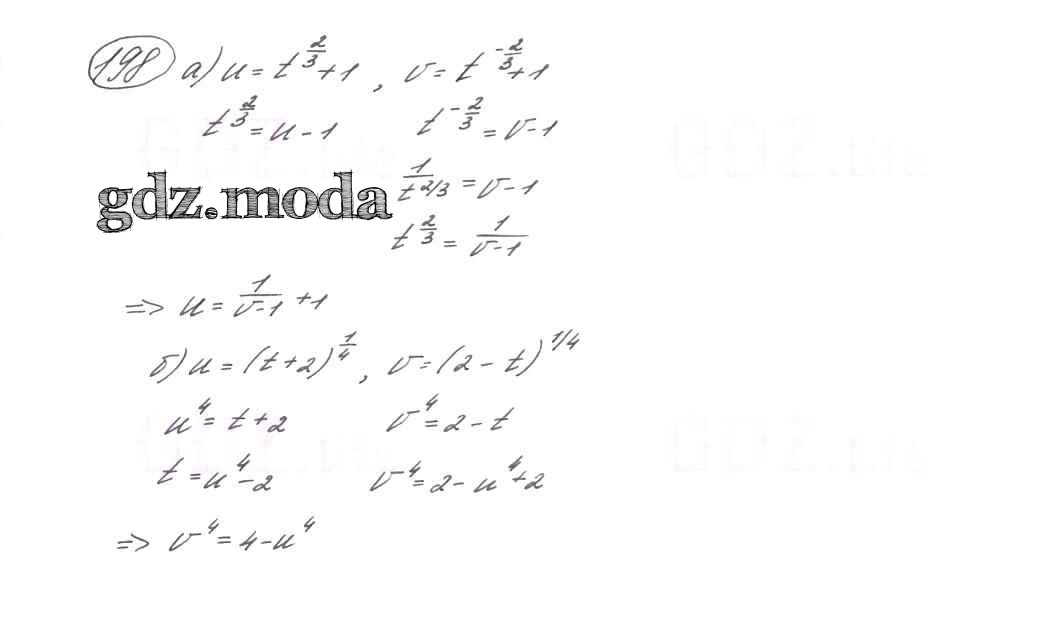 198 а) u = t^(2/3) + 1 , v = t^(-2/3) + 1
t^(2/3) = u - 1 t^(-2/3) = v - 1
gdz.moda 1/t^(2/3) = v - 1
t^(2/3) = 1/(v - 1)
=> u = 1/(v - 1) + 1
б) u = (t + 2)^(1/4) , v = (2 - t)^(1/4)
u^4 = t + 2 v^4 = 2 - t
t = u^4 - 2 v^4 = 2 - u^4 + 2
=> v^4 = 4 - u^4